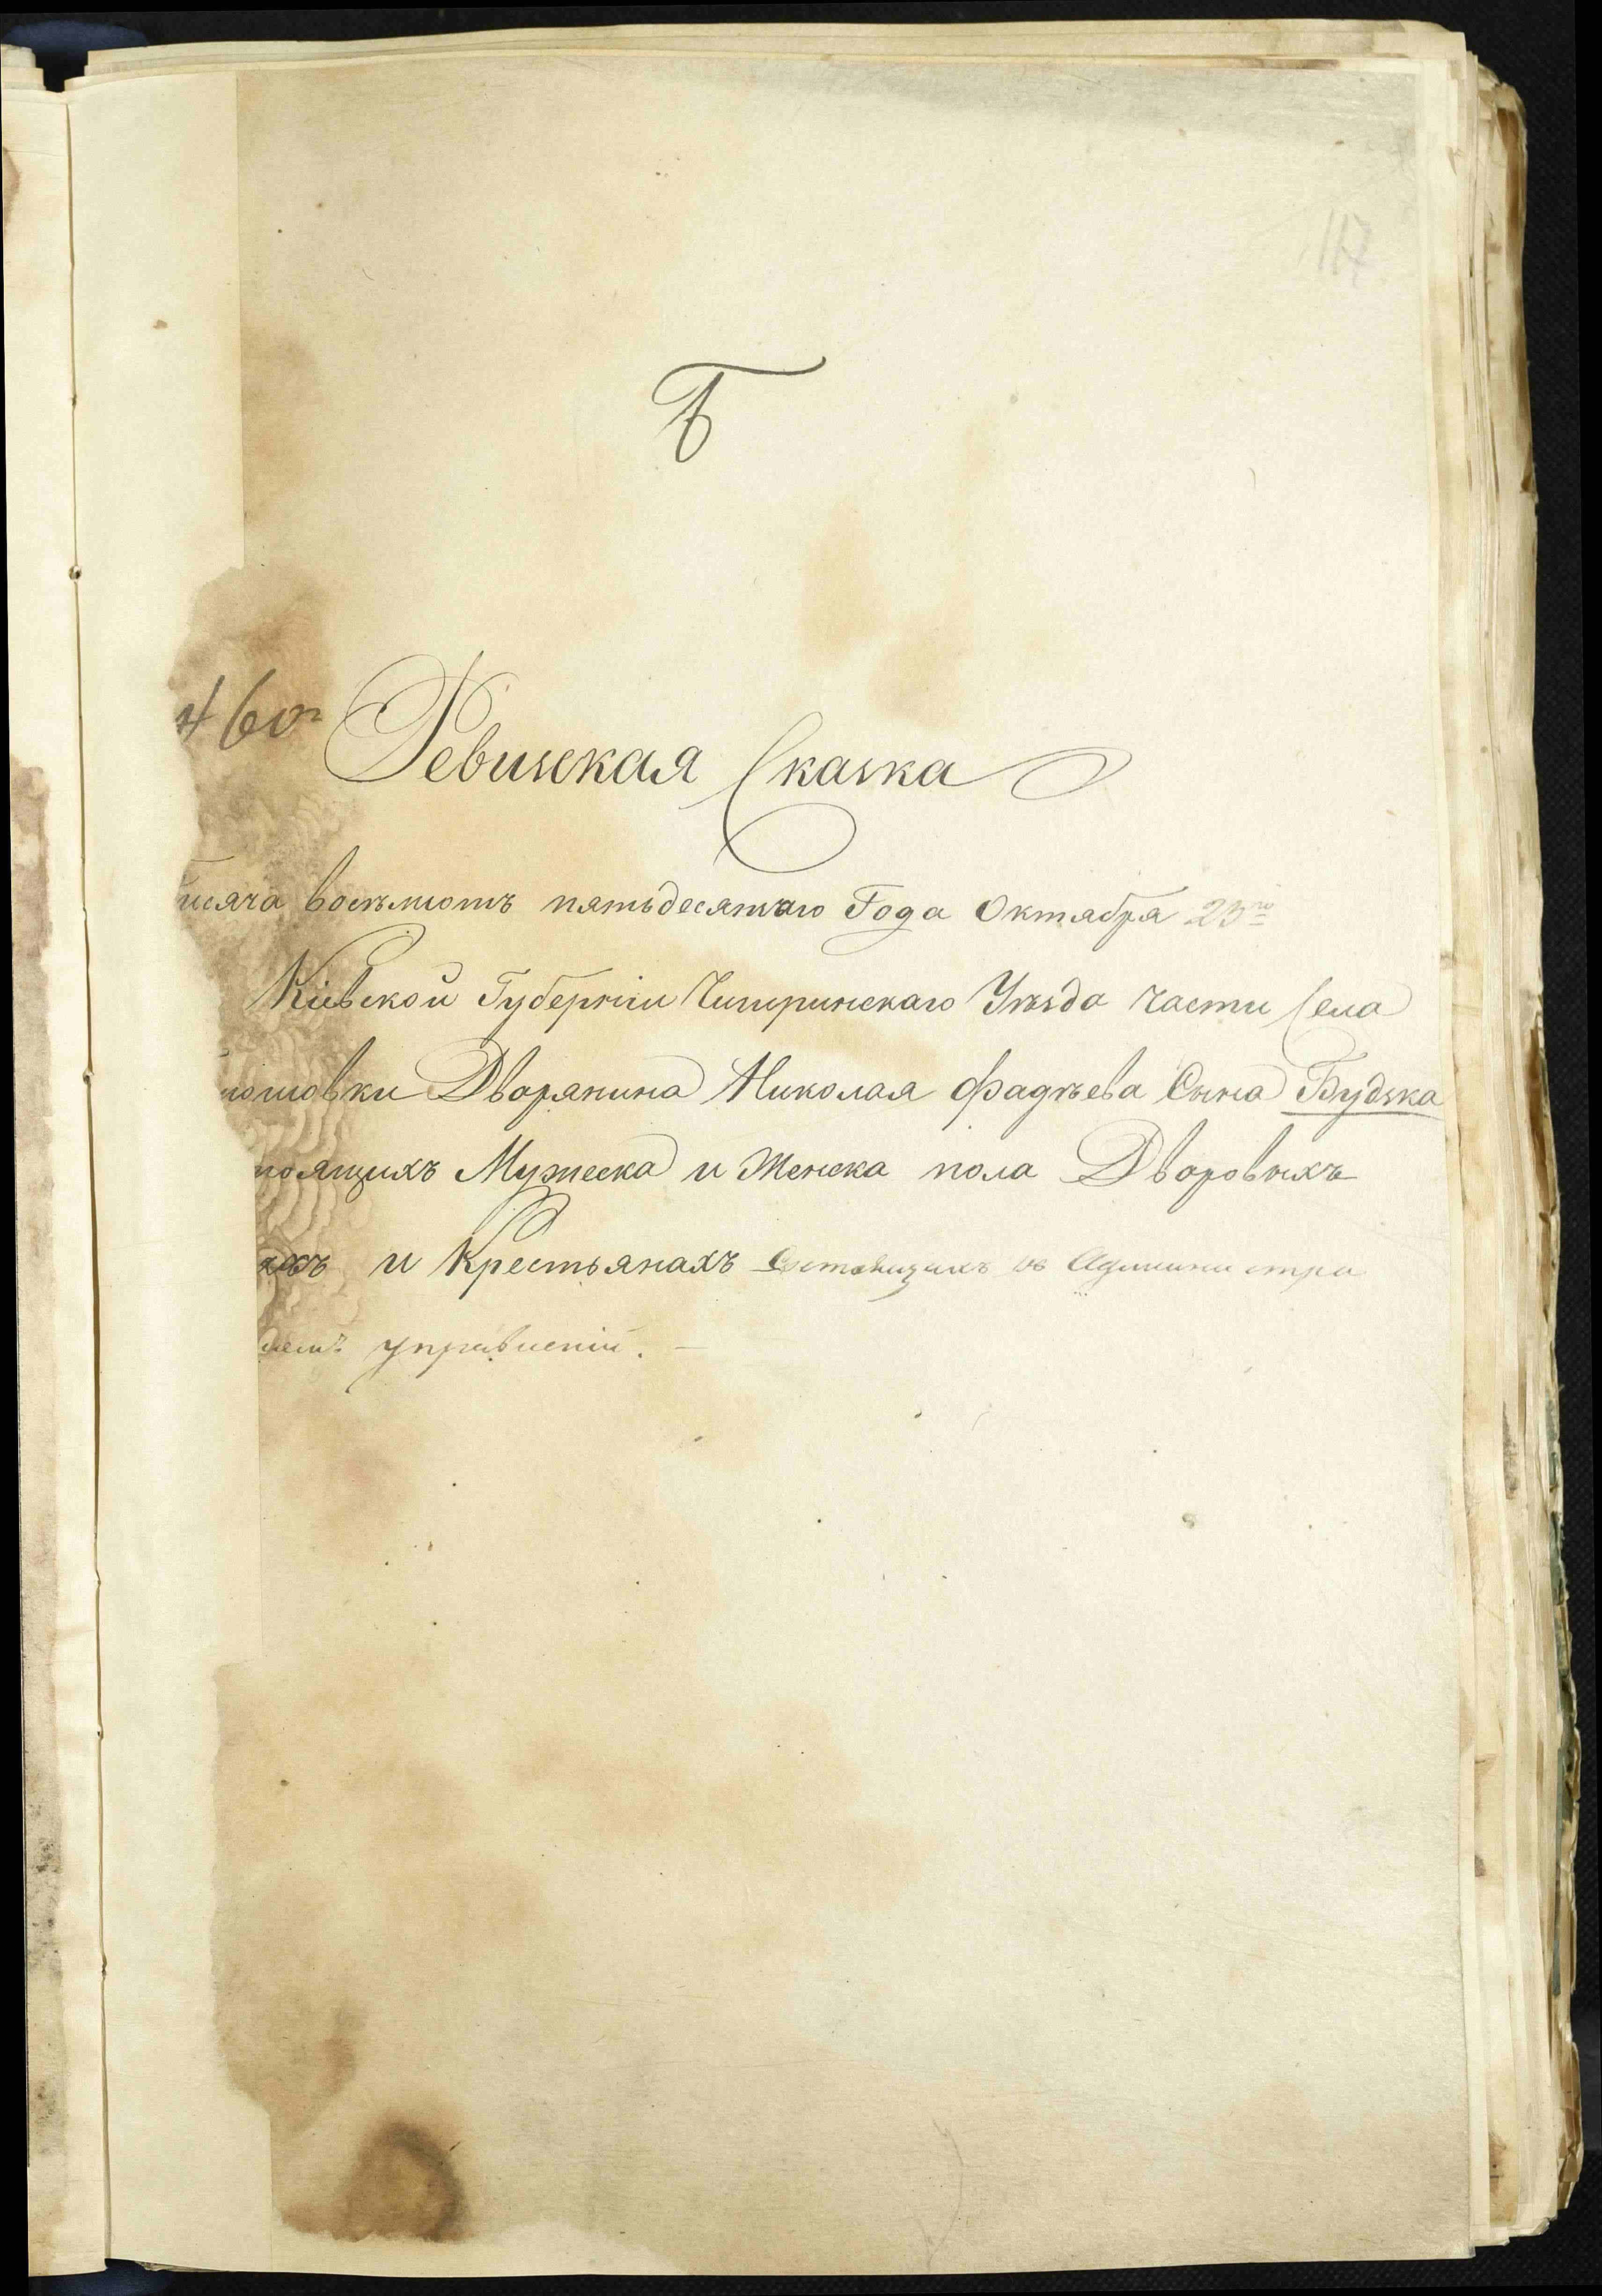 117
Б
460
Ревизская Сказка
тысяча восемьсотъ пятьдесятаго Года Октября 25го
Кіевской Губерніи Чигиринскаго Уѣзда части Села
Дворянина Николая Фадѣева Сына Будзка
тоящихъ Мужеска и Женска пола Дворовыхъ
яхъ и Крестьянахъ Состоящихъ въ Администра
управленіи. —